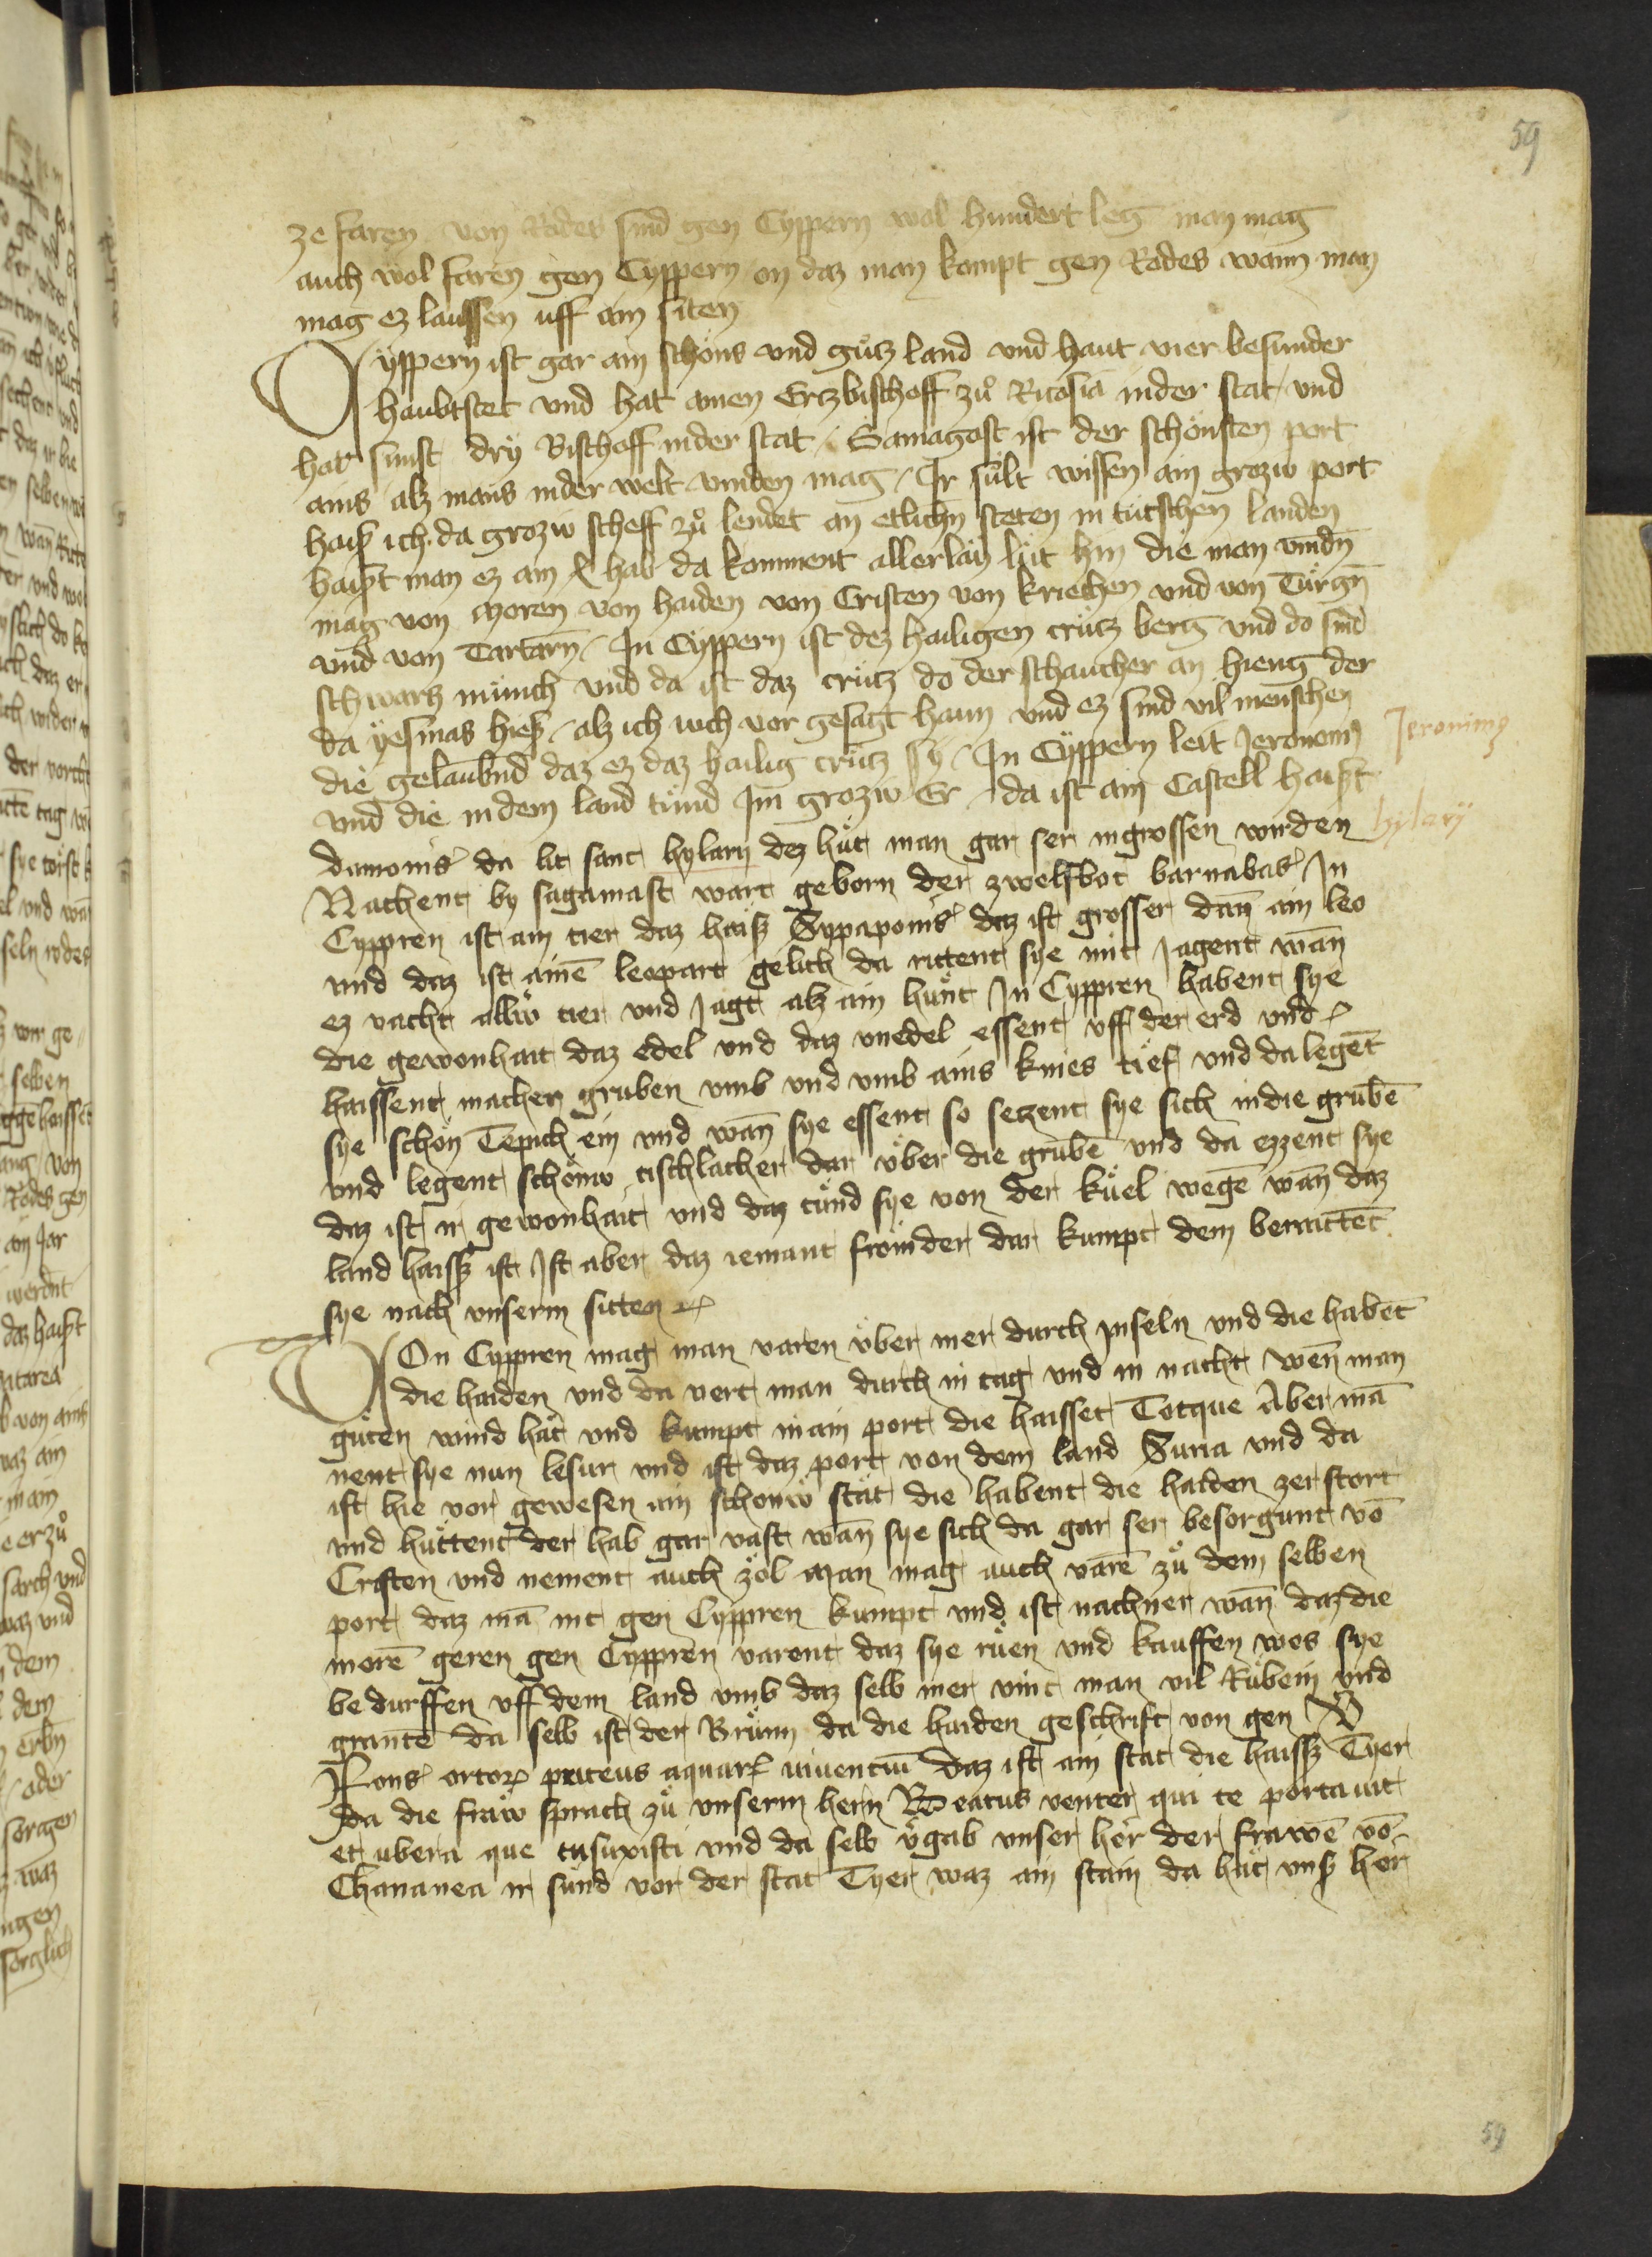 59
ze faren von Rodes sind gen Cyppern wol hundert leg man mag
auch wol faren gen Cyppern on daz man kompt gen Rodes wann man
mag ez laussen uff ain siten
Cyppern ist gar ain schöns vnd gůtz land vnd haut vier besunder
haubtstet vnd hat ainen Ertzbischoff zů Nicosia in der stat vnd
hat sunst dry Bischoff in der stat / Famagost ist der schönsten port
ains alz mans in der welt vinden mag / Ir sült wissen ain grozw port
haiß ich da grozw scheff zů lendet an etlichn steten in tütschen landen
haißt man ez ain hab da komment allerlay lüt hin die man vindn
mag von Moren von haiden von Cristen von kriechen vnd von Türgn̄
vnd von Tartarn̄ / In Cyppern ist dez hailigen crütz berg vnd do sind
schwartz münich vnd da ist daz crütz do der schaucher an hieng der
da yesmas hieß / alz ich uch vor gesagt haun vnd ez sind vil menschen
die gelaubnd daz ez daz hailig crütz sy / In Cyppern leit Jeronom⁹
Jeronim⁹
vnd die in dem land tünd Im grozw Er / da ist ain Castell haißt
damonis da lit sant hylary dez hüt man gar ser in grossen wirden
hylary
Nachent by fagamast wart geborn der zwelfbot barnabas In
Cyppren ist ain tier daz haisz Sypaponis daz ist grosser dan̄ ain leo
vnd daz ist ainē leopart gelich da rittent sye mit Jagent wān
ez vacht allw tier vnd Jagt alz ain hunt In Cyppren habent sye
die gewonhait daz edel vnd daz vnedel essent vff der erd vnd
haissent machen gruben vmb vnd vmb ains knies tief vnd da legēt
sye schön Tepich ein vnd wan̄ sye essent so setzent sye sich in die grubē
vnd legent schönw tischlacher dar über die grubē vnd da ezzent sye
daz ist ir gewonhait vnd daz tünd sye von der küel wegē wān daz
land haissz ist Ist aber daz iemant frömder dar kumpt dem beraittēt
sye nach vnserm sitten
VOn Cyppren mag man varen über mer durch Inseln vnd die habēt
die haiden vnd da vert man durch in tag vnd in nacht wen̄ man
güten wind hät vnd kumpt in ain port die haisset Totque Aber mā
nent sye nun lesur vnd ist daz port von dem land Suria vnd da
ist hie vor gewesen ain schönw stät die habent die haiden zerstort
vnd hüttent der hab gar vast wan̄ sye sich da gar ser besorgunt vō
Cristen vnd nement auch zöl Man mag auch varē zů dem selben
port daz mā nit gen Cyppren kumpt vnd ist nachner wan̄ daz die
merē geren gen Cyppren varent daz sye rüen vnd kauffen wes sye
bedurffen vff dem land vmb daz selb mer vint man vil Rübein vnd
granīte da selb ist der Brunn da die haiden geschrift von gen
Fons ortoꝝ puteus aquaꝝ viuentiū daz ist ain stat die haissz Tyer
da die fraw sprach zů vnserm hern Beatus venter qui te portauit
et ubera que tu suxisti vnd da selb vgab vnser her der frawē vō
Chananea ir sünd vor der stat Tyer waz ain stain da hät vnß her
59